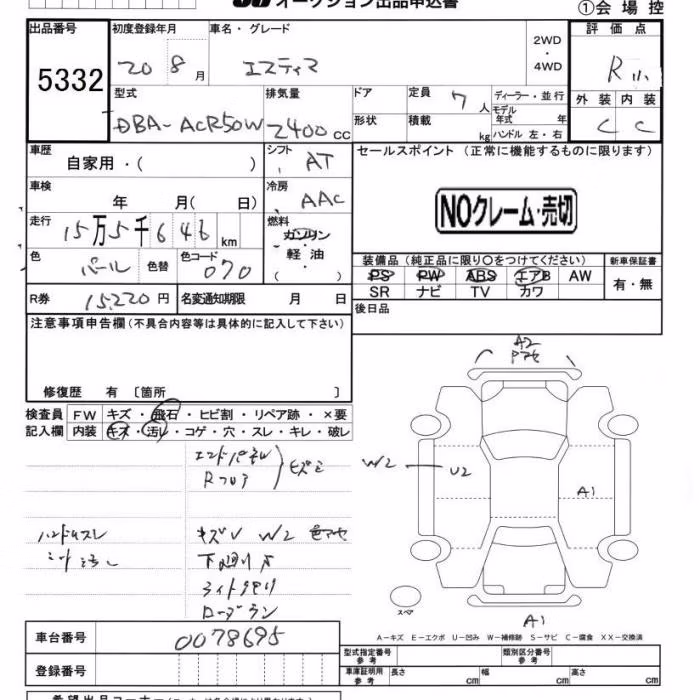 オークション出品申込書
①会場控
出品番号 初度登録年月 車名・グレード 2WD・4WD 評価点
5332 20 8月 エスティマ R
型式 排気量 ドア 定員 7人 ディーラー・並行 外装 内装
DBA-ACR50W 2400cc 形状 積載 kg モデル年式 年 ハンドル 左・右 C C
車歴 自家用・( ) シフト AT セールスポイント (正常に機能するものに限ります)
車検 年 月( 日) 冷房 AAC
NOクレーム・売切
走行 15万5千646km 燃料 ガソリン・軽油 ( )
色 パール 色替 色コード 070
装備品(純正品に限り○をつけてください) 新車保証書
PS PW ABS エアB AW 有・無
SR ナビ TV カワ
R券 15,220円 名変通知期限 月 日 後日品
注意事項申告欄(不具合内容等は具体的に記入して下さい)
修復歴 有 〔箇所 〕
検査員 FW キズ・飛石・ヒビ割・リペア跡・×要
記入欄 内装 キズ・汚レ・コゲ・穴・スレ・キレ・破レ
A2
エンドパネル
Rフロア
W2 U2 A1
ハンドルスレ キズ V W2
下廻りサ
スペア
A1
A-キズ E-エクボ U-凹み W-補修跡 S-サビ C-腐食 XX-交換済
車台番号 0078695
型式指定番号 参考 類別区分番号 参考
登録番号 車庫証明用 参考 長さ cm 幅 cm 高さ cm